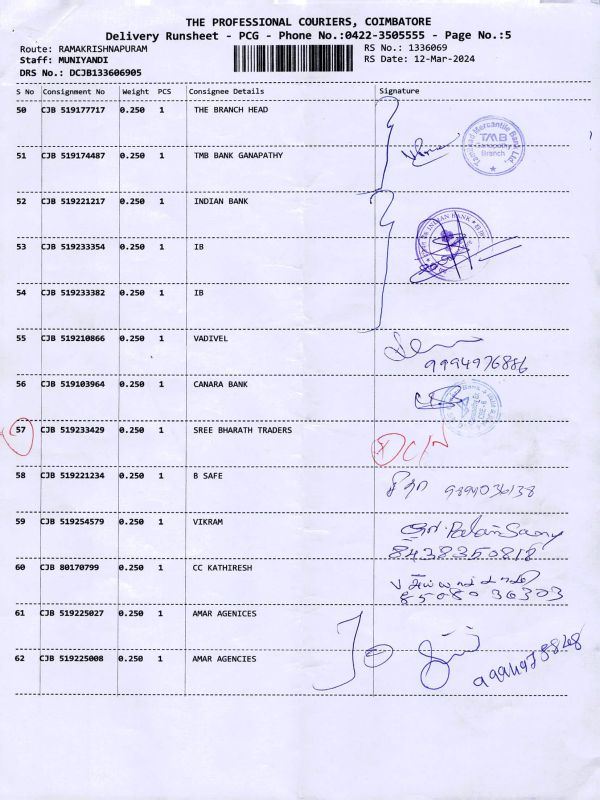 THE PROFESSIONAL COURIERS, COIMBATORE
Delivery Runsheet - PCG - Phone No.:0422-3505555 - Page No.:5
Route: RAMAKRISHNAPURAM
RS No.: 1336069
Staff: MUNIYANDI
RS Date: 12-Mar-2024
DRS No.: DCJB133606905
S No Consignment No Weight PCS Consignee Details Signature
50 CJB 519177717 0.250 1 THE BRANCH HEAD
Tamilnad Mercantile Bank Ltd.
TMB
Ganapathy
Branch
51 CJB 519174487 0.250 1 TMB BANK GANAPATHY
52 CJB 519221217 0.250 1 INDIAN BANK
INDIAN BANK
53 CJB 519233354 0.250 1 IB
54 CJB 519233382 0.250 1 IB
55 CJB 519210866 0.250 1 VADIVEL
9994976886
56 CJB 519103964 0.250 1 CANARA BANK
57 CJB 519233429 0.250 1 SREE BHARATH TRADERS
58 CJB 519221234 0.250 1 B SAFE
9894036138
59 CJB 519254579 0.250 1 VIKRAM
8438350818
60 CJB 80170799 0.250 1 CC KATHIRESH
85080 36303
61 CJB 519225027 0.250 1 AMAR AGENICES
62 CJB 519225008 0.250 1 AMAR AGENCIES